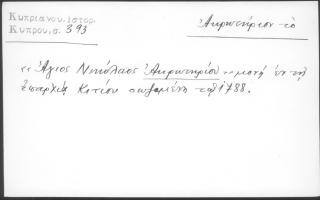 Κυπριανου. Ιστορ.
Κυπρου, σ. 393
Ἀκρωτήριον τὸ
"Ἅγιος Νικόλαος Ἀκρωτηρίου" μονὴ ἐν τῇ
ἐπαρχίᾳ Κιτίου σωζομένη τῷ 1788.